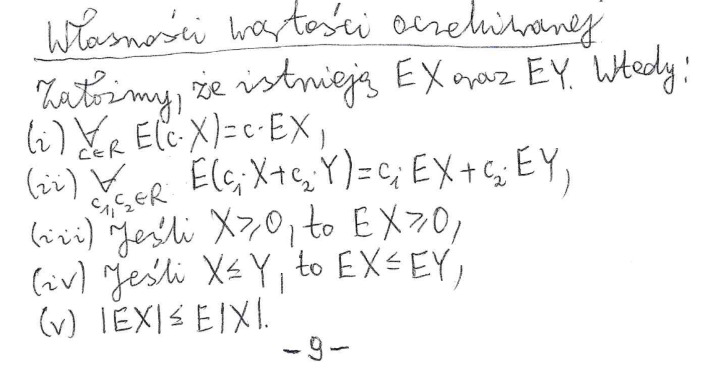 Własności wartości oczekiwanej
Załóżmy, że istnieją EX oraz EY. Wtedy:
(i) ∀_{c∈R} E(c·X)=c·EX,
(ii) ∀_{c₁,c₂∈R} E(c₁·X+c₂·Y)=c₁·EX+c₂·EY,
(iii) Jeśli X≥0, to EX≥0,
(iv) Jeśli X≤Y, to EX≤EY,
(v) |EX|≤E|X|.
-9-